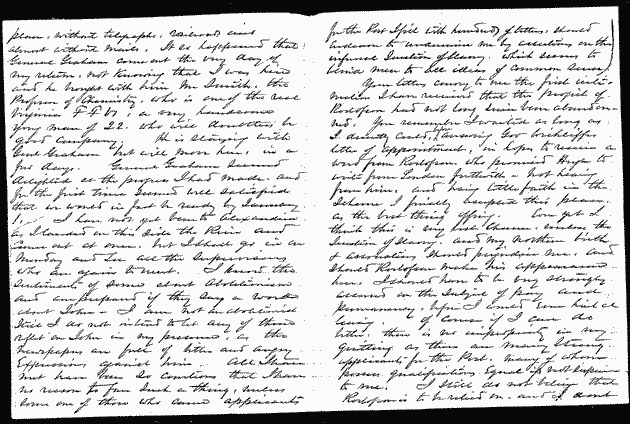 place, without telegraph, railroads and
almost without mails. It so happened that
General Graham came out the very day of
my return, not knowing that I was here
and he brought with him Mr Smith, the
Professor of Chemistry, who is one of the real
Virginia F.F.V's, a very handsome
young man of 22, who will doubtless be
good company. He is staying with
Genl Graham but will move here in a
few days. General Graham seemed
delighted at the progress I had made and
for the first time seemed well satisfied
that we would in fact be ready by January
1. I have not yet been to Alexandria
as I landed on this side the River and
came out at once, but I shall go in on
Monday and see all the Supervisors
who are again to meet. I know the
sentiments of some about Abolitionism
and am prepared if they say a word
about John - I am not an abolitionist
Still I do not intend to let any of them
reflect on John in my presence, as the
newspapers are full of bitter and angry
expressions against him. All I have
met have been so courteous that I have
no reason to fear such a thing, unless
some one of those who were applicants
for the Post I fill with hundreds of others, should
endeavor to undermine me by assertions on this
infernal question of slavery, which seems to
blind men to all ideas of common sense.
Your letter conveys to me the first
I have received that the project of
Rostofson had not long since been abandoned.
You remember I waited as long as
I decently could, answering Gov
letter of appointment, in hope to receive a
word from Rostofson who promised Hugh to
write from London forthwith - not hearing
from him, and having little faith in the
scheme I finally accepted this place,
as the best thing offering. Even yet I
think this is my best chance, unless the
question of slavery, and my Northern birth
& associations should prejudice me. And
should Rostofson make his appearance
here, I should have to be very strongly
assured on the subject of Pay and
permanency, before I could even hint at
leaving. Of course if I can do
better, there is no impropriety in my
quitting as there are many strong
applicants for the Post, many of whom
possess qualifications equal if not superior
to me. I still do not believe that
Rostofson is to be relied on, and I